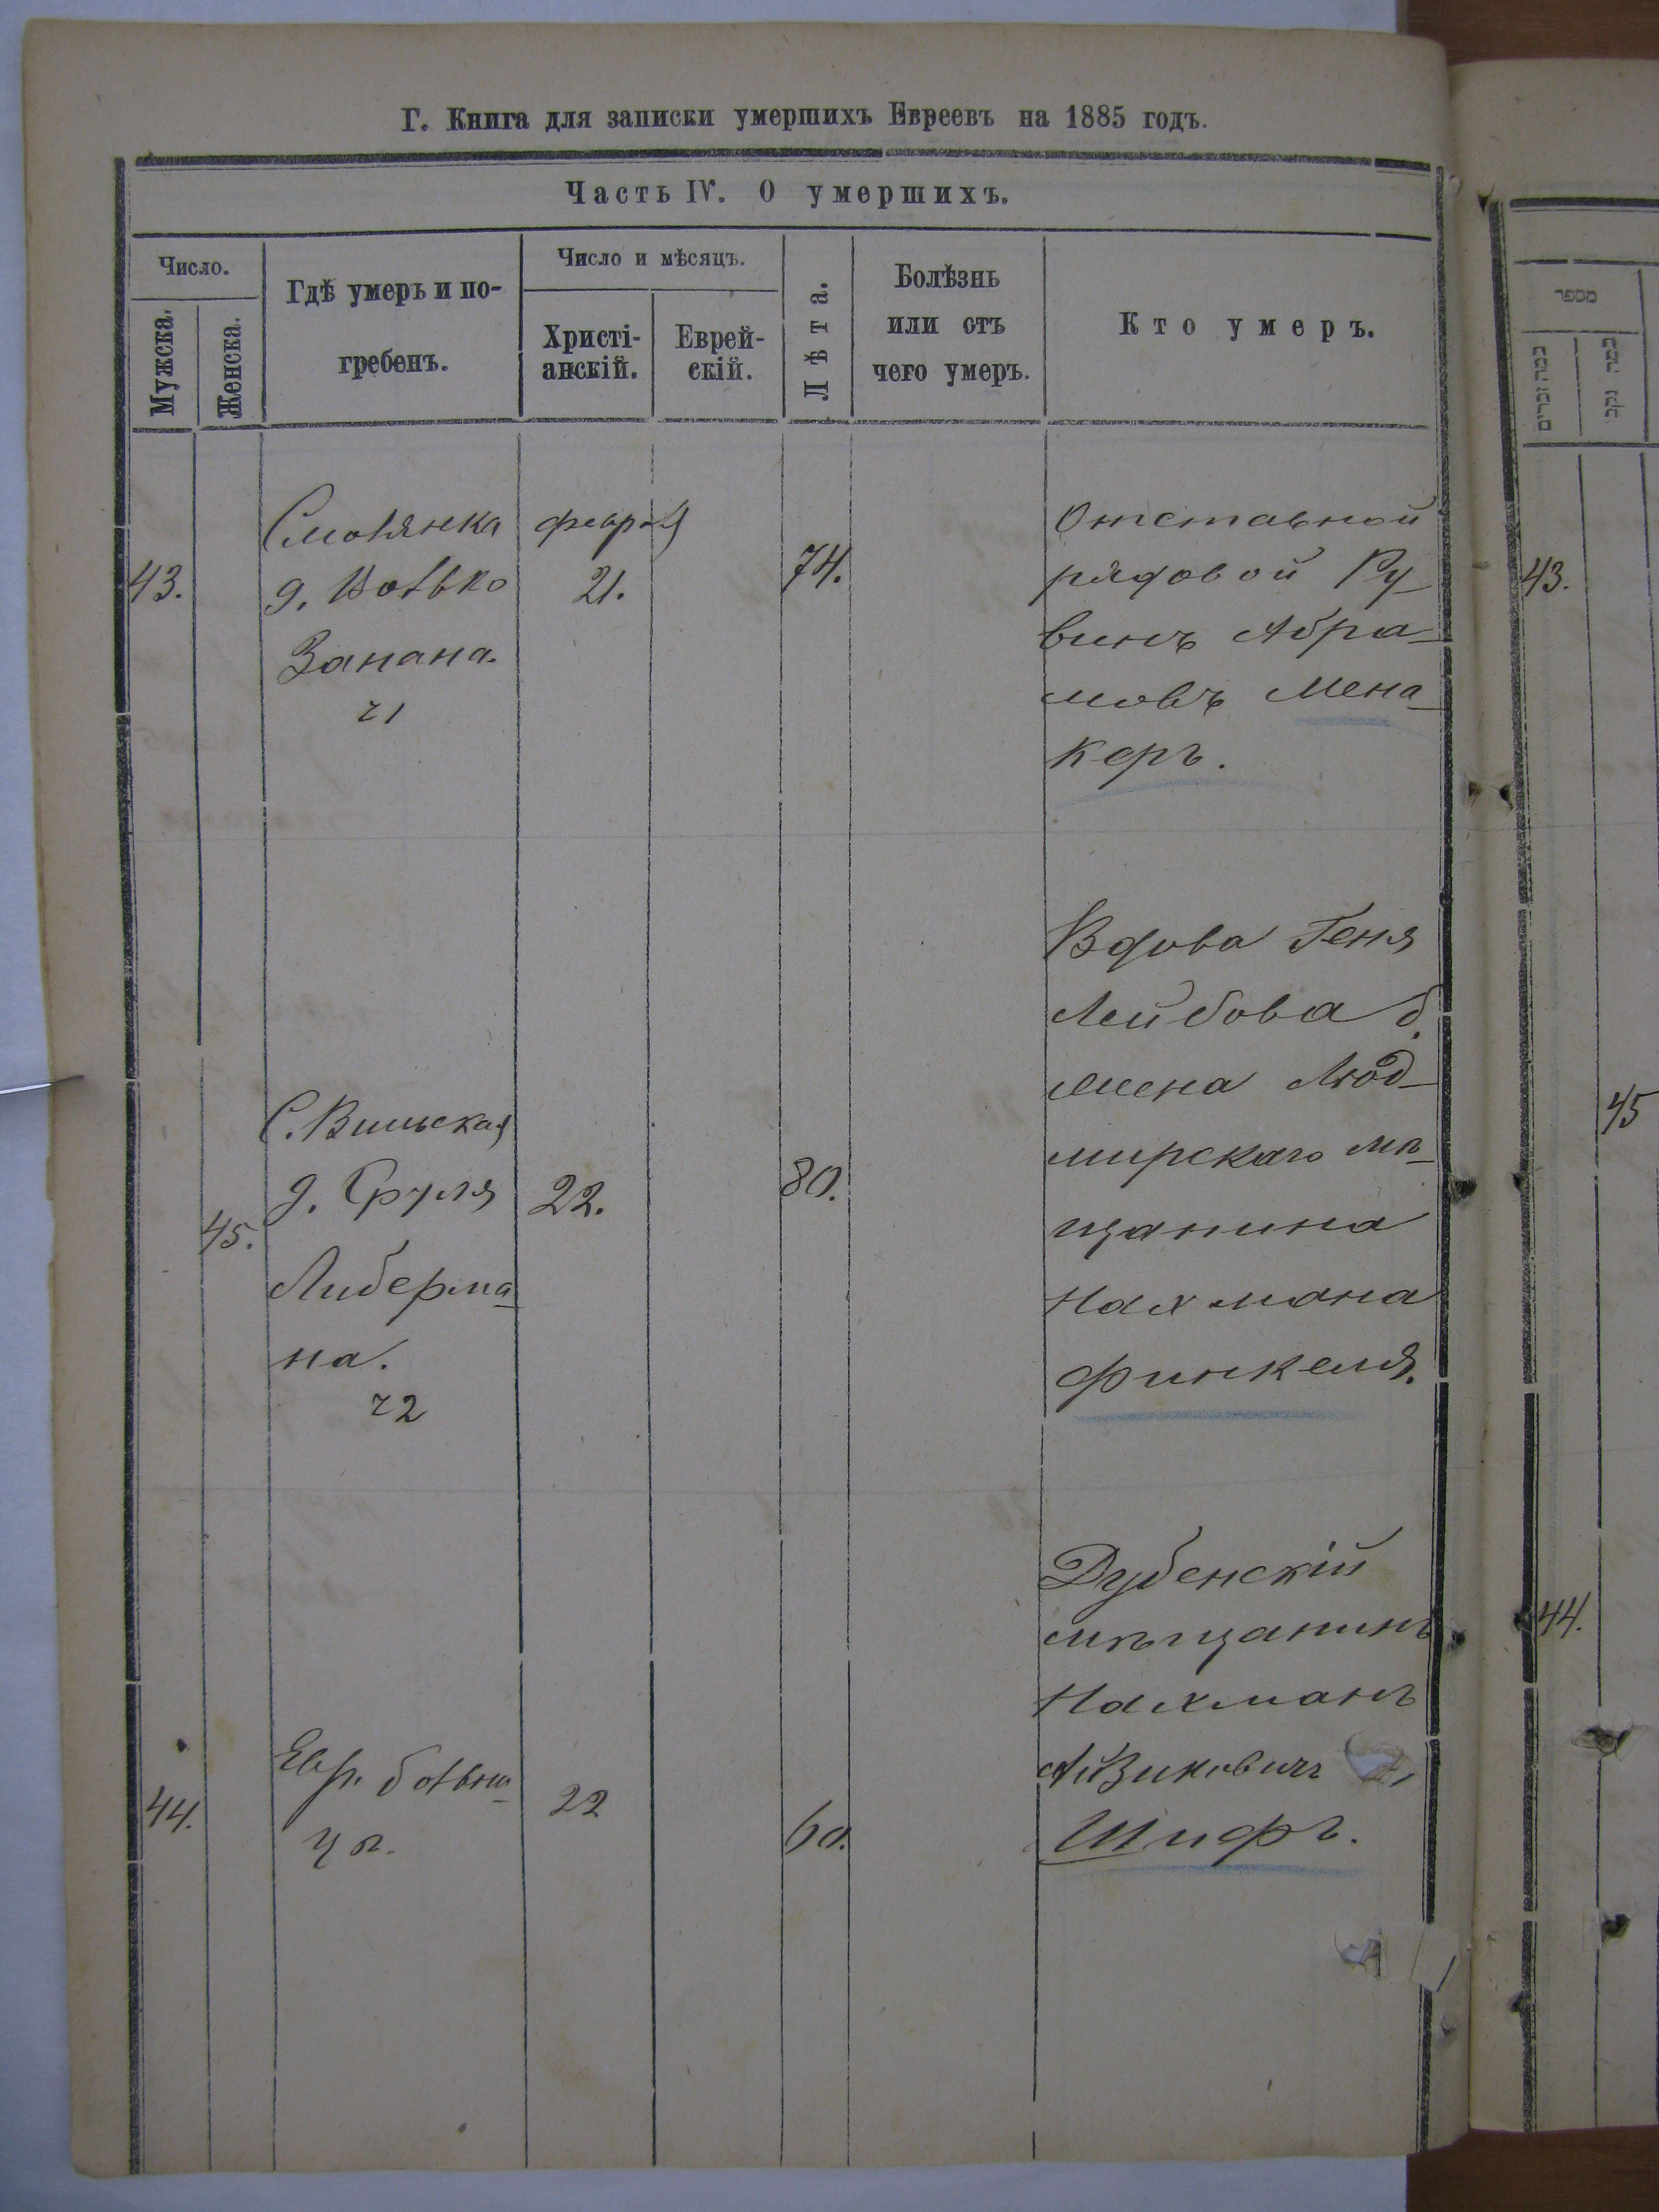 Г. Книга для записки умершихъ Евреевъ на 1885 годъ.
Часть IV. О умершихъ.
Число.
Мужска.
Женска.
Гдѣ умеръ и по-
гребенъ.
Число и мѣсяцъ.
Христі-
анскій.
Еврей-
скій.
Лѣта.
Болѣзнь
или отъ
чего умеръ.
Кто умеръ.
43.
Смолянка
д. Волько
Занана.
ч1
21.
74.
Отставной
рядовой Ру-
винъ Абра-
мовъ Мена-
керъ.
45.
С. Вильская
д. Сруля
Либерма-
на.
ч2
22.
80.
Вдова Геня
Лейбова б.
жена Люд-
мирскаго мѣ-
щанина
Нахмана
Финкеля.
44.
Евр. больни-
цѣ.
22
60.
Дубенскій
мѣщанинъ
Нахманъ
Айзиковичъ
Шифъ.
מספר
43.
45
44.